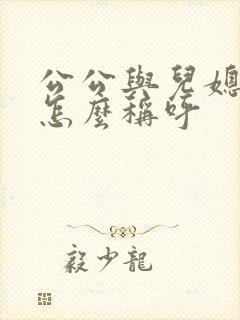 公公與兒媳
怎麼稱呼
毅少龍